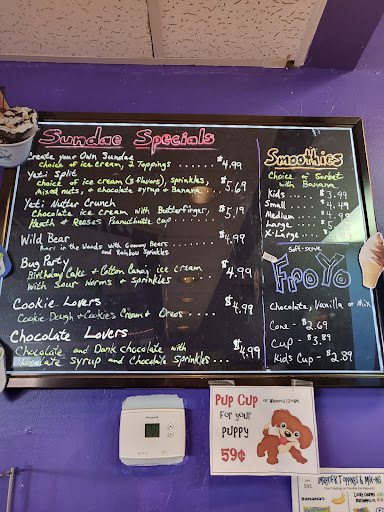 Sundae Specials
Create your Own Sundae
choice of ice cream, 2 Toppings ...... $4.99
Yeti Split
choice of ice cream (3 flavors), sprinkles,
mixed nuts, & chocolate syrup & Banana ... $5.69
Yeti Nutter Crunch
Chocolate ice cream with Butterfinger, $5.19
Heath & Reeses Peanutbutter cup
Wild Bear ...... $4.99
Roars in the Woods with Gummy Bears
and Rainbow Sprinkles
Bug Party
Birthday Cake & Cotton Candy ice cream $4.99
with Sour Worms & Sprinkles
Cookie Lovers
Cookie Dough & Cookies Cream & Oreos .... $4.99
Chocolate Lovers
Chocolate and Dark chocolate with
Chocolate syrup and Chocolate Sprinkles... $4.99
Smoothies
Choice of Sorbet
with Banana
Kids $3.99
Small 4.49
Medium
Large
X-Large
Soft-serve
FroYo
Chocolate, Vanilla or Mix
Cone - $2.69
Cup - $3.89
Kids Cup - $2.89
Pup Cup of Whipped Cream
For your
puppy
59¢
Honeywell
Toppings & Mix-ins
BANANAS